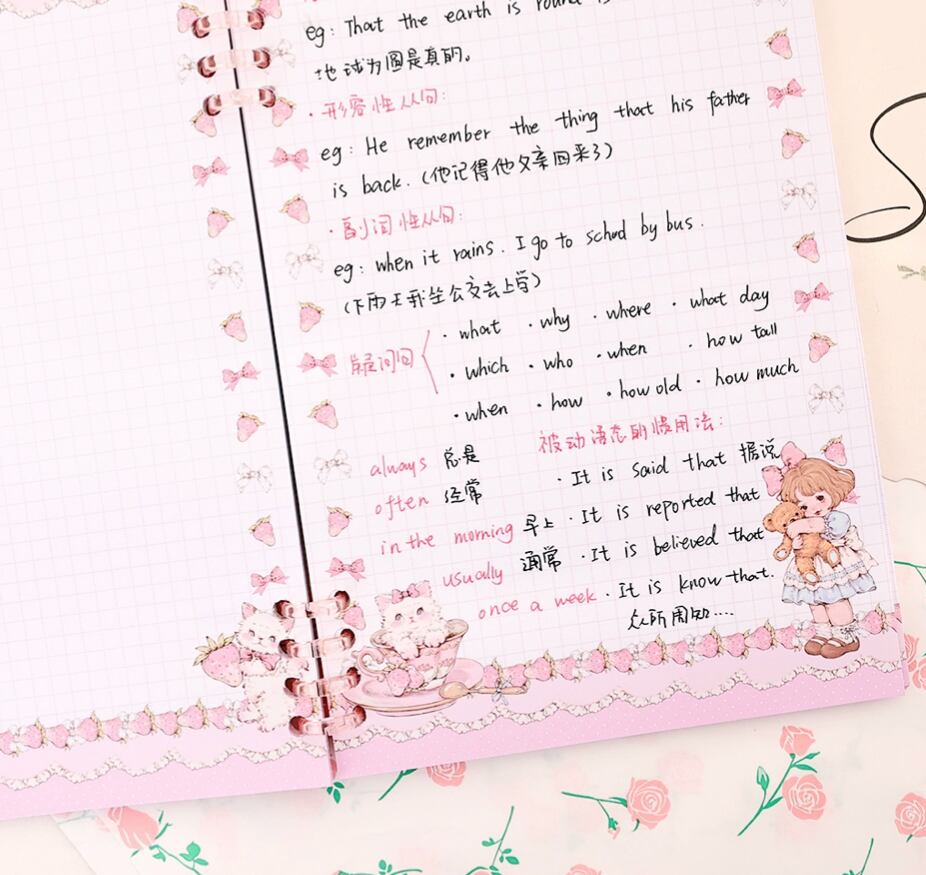 eg: That the earth is round
地球为圆是真的。
·形容性从句:
eg: He remember the thing that his father
is back. (他记得他父亲回来了)
·副词性从句:
eg: when it rains. I go to school by bus.
(下雨天我坐公交去上学)
疑问词
·what ·why ·where ·what day
·which ·who ·when ·how tall
·when ·how ·how old ·how much
被动语态的惯用法:
always 总是
·It is said that 据说
often 经常
·It is reported that
in the morning 早上
·It is believed that
usually 通常
·It is know that.
once a week
众所周知....